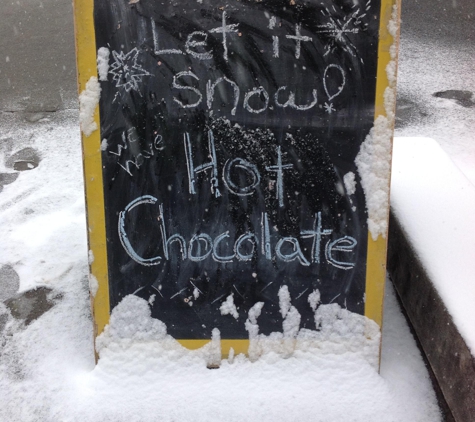 Let it
Snow!
We
have
Hot
Chocolate